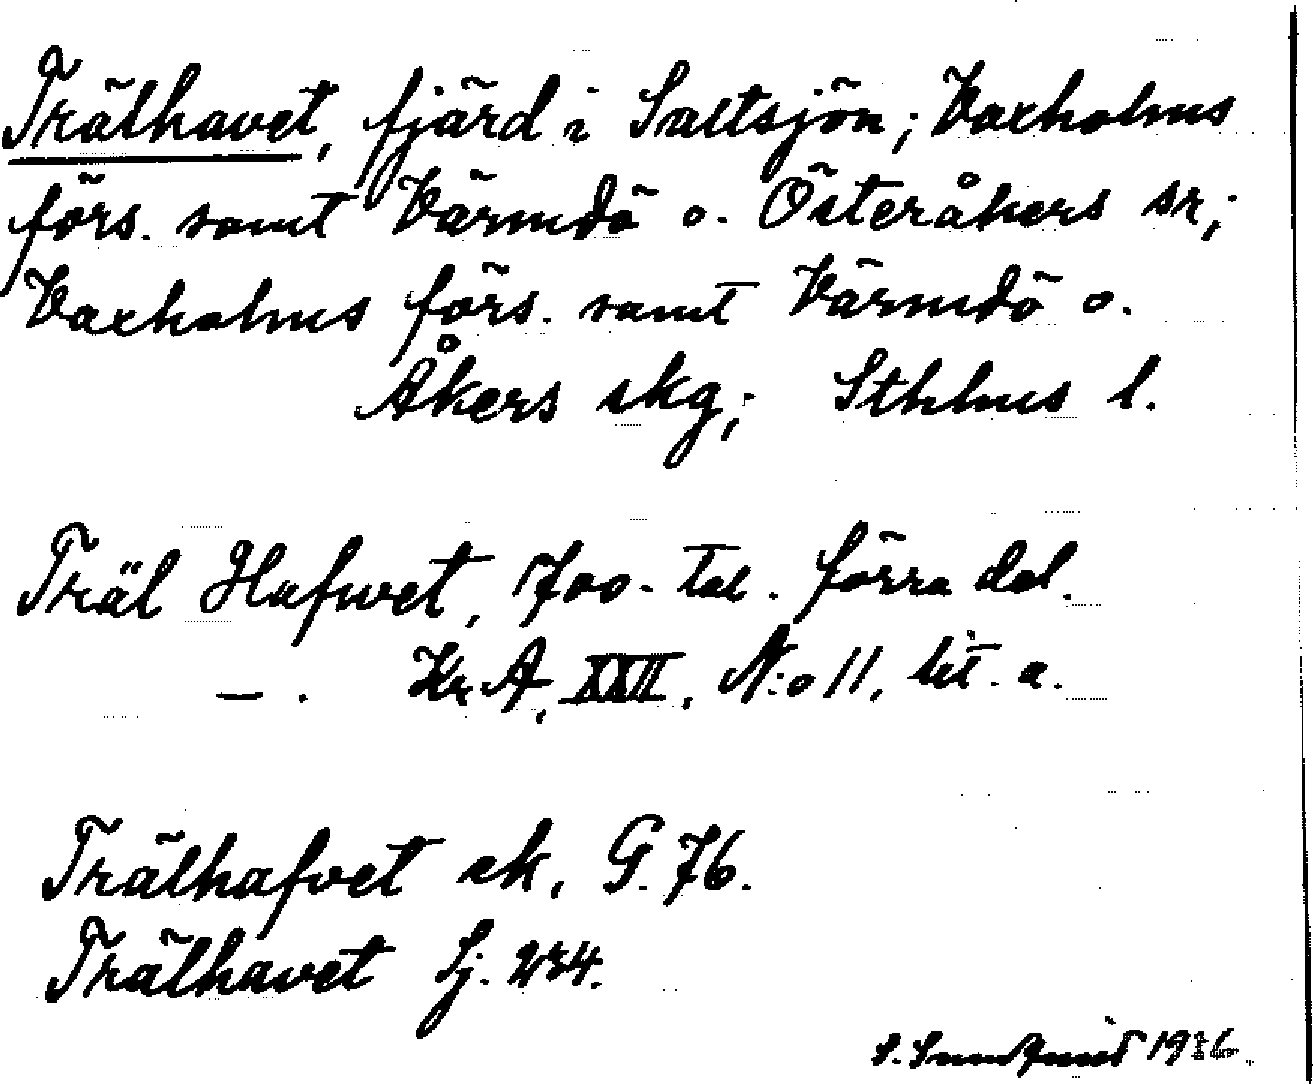 Trälhavet, fjärd i Saltsjön; Vaxholms
förs. samt Värmdö o. Österåkers sn;
Vaxholms förs. samt Värmdö o.
Åkers skg; Sthlms l.
Träl Hafwet, 1700-tal. förra del.
— . Kr. A, XXII, N:o 11, lit. a.
Trälhafvet ek, G. 76.
Trälhavet Sj. 234.
S. Sundquist